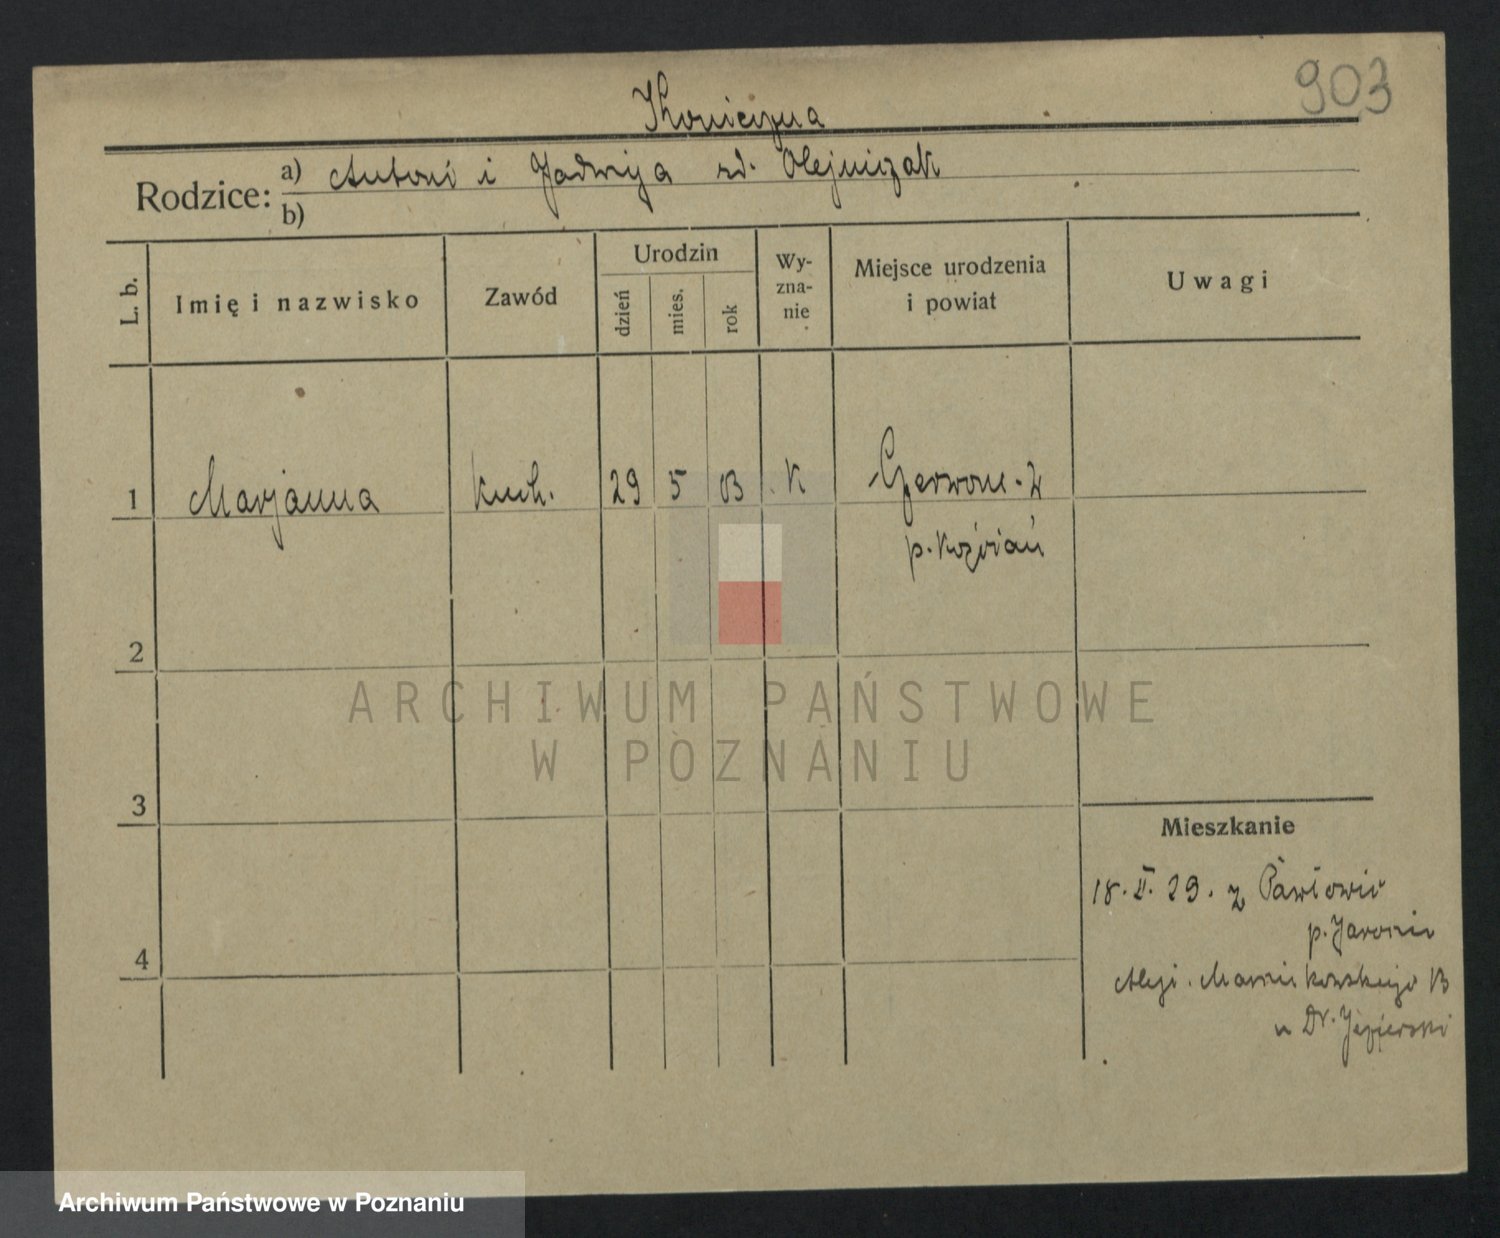 903
Konieczna
Rodzice: a) Antoni i Jadwiga rd. Olejniczak
b)
L. b.
Imię i nazwisko
Zawód
Urodzin
dzień
mies.
rok
Wy-
zna-
nie
Miejsce urodzenia
i powiat
Uwagi
1 Marjanna kuch. 29 5 03 K
p. Koźmiań
2
3
4
ARCHIWUM PAŃSTWOWE
W POZNANIU
Mieszkanie
18. II. 29. z Pawłowic
p. Jarocin
Aleje. Marcinkowskiego
u Dr. Jezierski
Archiwum Państwowe w Poznaniu